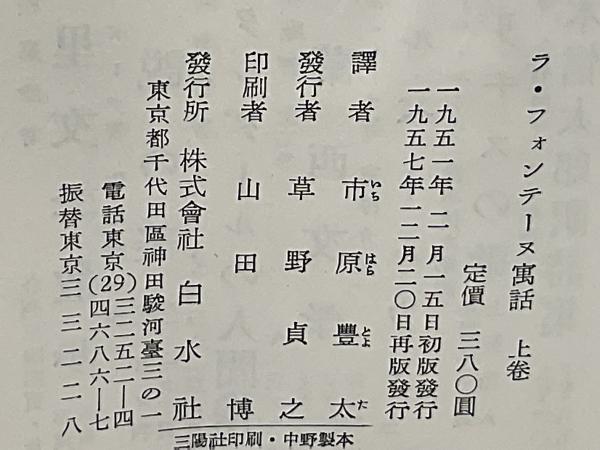 ラ・フォンテーヌ寓話 上卷
定價 三八〇圓
一九五一年 二月一五日初版發行
一九五七年一二月二〇日再版發行
譯者 市原豐太
いち はら とよ た
發行者 草野貞之
印刷者 山田博
發行所 株式會社 白水社
東京都千代田區神田駿河臺三の一
電話東京(29)三二五二―四
四六八六―七
振替東京三三二二八
三陽社印刷・中野製本